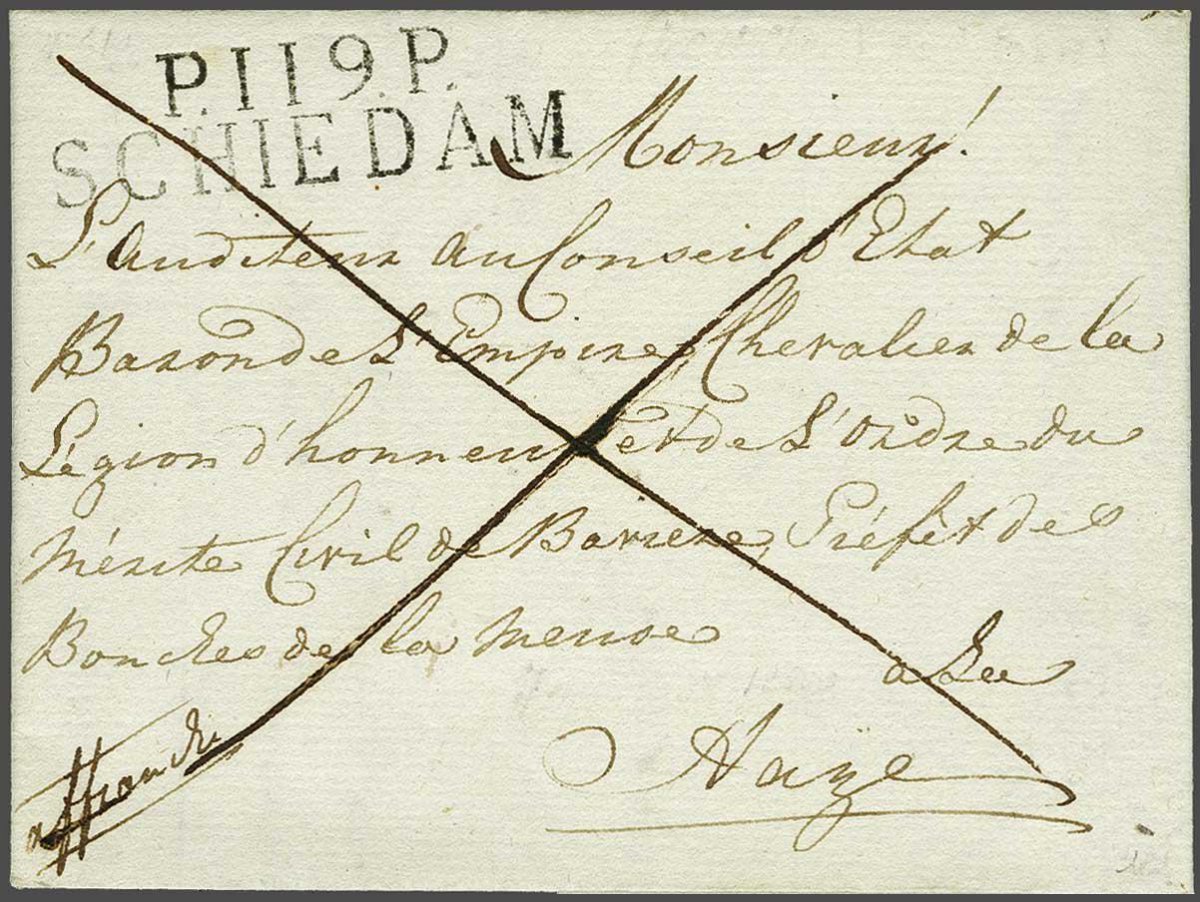 P.119.P.
SCHIEDAM
Monsieur!
L'Auditeur Au Conseil d'Etat
Baron de L'Empire, Chevalier de la
Légion d'honneur et de L'ordre du
Mérite Civil de Baviere, Préfêt des
Bouches de la Meuse
a La
Haye
affranchi